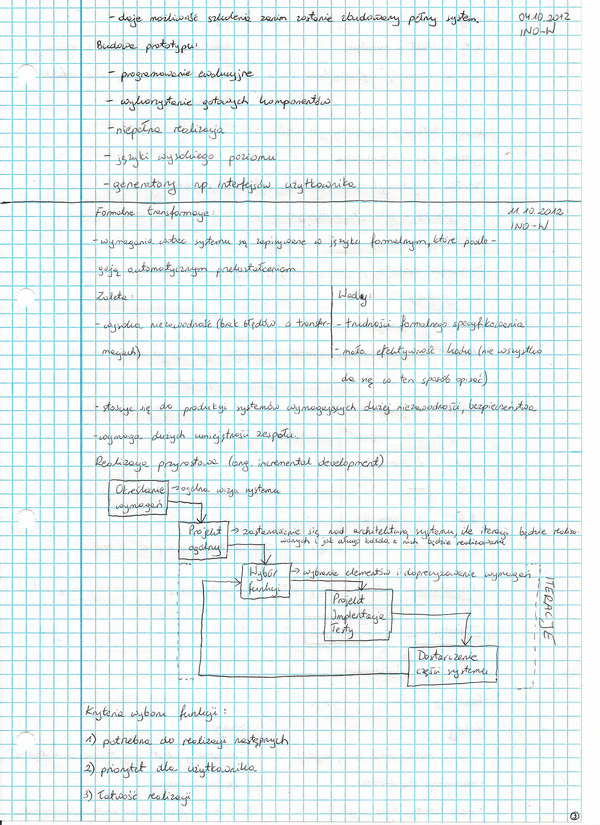 - daje możliwość szkolenia zanim zostanie zbudowany pełny system.
04.10.2012
INO-W
Budowa prototypu:
- programowanie ewolucyjne
- wykorzystanie gotowych komponentów
- niepełna realizacja
- języki wysokiego poziomu
- generatory np. interfejsów użytkownika
Formalne transformacje:
11.10.2012
INO-W
- wymagania wobec systemu są zapisywane w języku formalnym, które podle-
gają automatycznym przekształceniom
Zaleta:
- wysoka niezawodność (brak błędów o transfor-
macjach)
Wady:
- trudności formalnego specyfikowania
- mała efektywność kodu (nie wszystko
da się w ten sposób opisać)
- stosuje się do produkcji systemów wymagających dużej niezawodności, bezpieczeństwa
- wymaga dużych umiejętności zespołu.
Realizacja przyrostowa (ang. incremental development)
Określanie
wymagań
→ ogólna wizja systemu
Projekt
ogólny
→ zastanowienie się nad architekturą systemu, ile iteracji będzie realizo-
wanych i jak długo każda z nich będzie realizowana
Wybór
funkcji
→ wybranie elementów i doprecyzowanie wymagań
Projekt
Implentacja
Testy
Dostarczenie
części systemu
ITERACJE
Kryteria wyboru funkcji:
1) potrzebna do realizacji następnych
2) priorytet dla użytkownika
3) łatwość realizacji
2